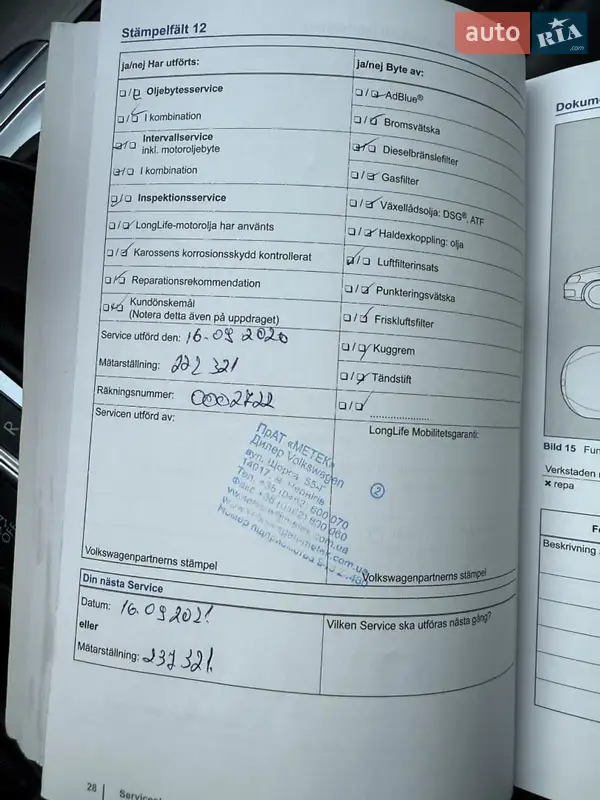 auto RIA .com
Stämpelfält 12
ja/nej Har utförts:
ja/nej Byte av:
Oljebytesservice
I kombination
Intervallservice
inkl. motoroljebyte
I kombination
Inspektionsservice
LongLife-motorolja har använts
Karossens korrosionsskydd kontrollerat
Reparationsrekommendation
Kundönskemål
(Notera detta även på uppdraget)
AdBlue®
Bromsvätska
Dieselbränslefilter
Gasfilter
Växellådsolja: DSG®, ATF
Haldexkoppling: olja
Luftfilterinsats
Punkteringsvätska
Friskluftsfilter
Kuggrem
Tändstift
Service utförd den: 16.09 2020
Mätarställning: 222 321
Räkningsnummer: 0002722
Servicen utförd av:
LongLife Mobilitetsgaranti:
ПрАТ «МЕТЕК»
Дилер Volkswagen
вул. Щорса, 55-
14017, м. Чернігів
600 070
2
Volkswagenpartnerns stämpel
Volkswagenpartnerns stämpel
Din nästa Service
Datum: 16.09 2021.
eller
Mätarställning: 237 321.
Vilken Service ska utföras nästa gång?
28
Dokum
Bild 15 Fun
Verkstaden
× repa
Beskrivning